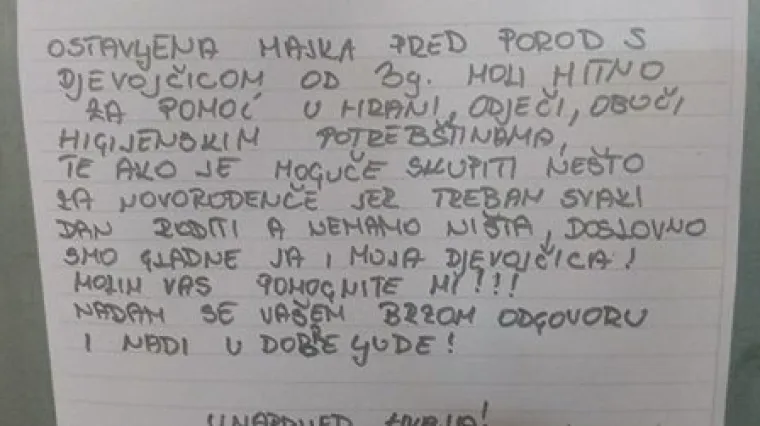 OSTAVLJENA MAJKA PRED POROD S
DJEVOJČICOM OD 3g. MOLI HITNO
ZA POMOĆ U HRANI, ODJEČI, OBUČI
HIGIJENSKIM POTREBŠTINAMA,
TE AKO JE MOGUČE SKUPITI NEŠTO
ZA NOVORODENČE JER TREBAM SVAKI
DAN RODITI A NEMAMO NIŠTA, DOSLOVNO
SMO GLADNE JA I MOJA DJEVOJČICA!
MOLIM VAS POMOGNITE MI!!!
NADAM SE VAŠEM BRZOM ODGOVORU
I NADI U DOBRE LJUDE!
UNAPRIJED HVALA!